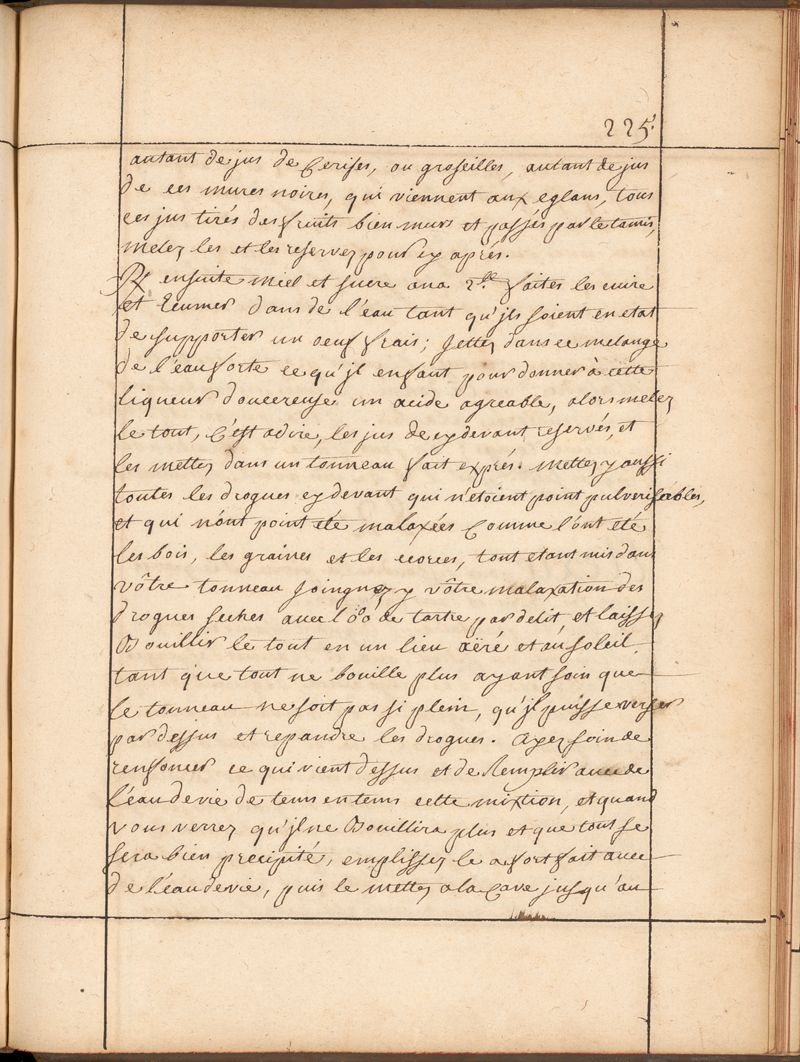 225.
autant de jus de Cerises, ou groseilles, autant de jus
de ces mures noires, qui viennent aux eglans, tous
ces jus tirés des fruits bien murs et passés par le tamis,
melez les et les reservez pour cy aprés.
℞ ensuite miel et sucre ana 2.ˡˡ faites les cuire
et Ecumer dans de l'eau tant qu'jls soient en etat
de supporter un oeuf frais; Jettez dans ce melange
de l'eau forte ce qu'jl en faut pour donner à cette
liqueur doucereuse un acide agreable, alors melez
le tout, C'est adire, les jus de cy devant reservés, et
les mettez dans un tonneau fait exprés. mettez y aussi
toutes les drogues cy devant qui n'etoient point pulverisables,
et qui n'ont point été malaxées Comme l'ont été
les bois, les graines et les ecorces, tout etant mis dans
vôtre tonneau Joingnez y vôtre malaxation des
drogues seches avec l'8⁰ de tartre par delit et laissez
Bouillir le tout en un lieu aëré et au soleil
tant que tout ne bouille plus ayant soin que
le tonneau ne soit pas si plein, qu'jl puisse verser
par dessus et repandre les drogues. Ayez soin de
renfoncer ce qui vient dessus et de Remplir avec de
l'eau de vie de tems en tems cette mixtion, et quand
vous verrez qu'jl ne Bouillira plus et que tout se
sera bien precipité, emplissez le a fort fait avec
de l'eau de vie, puis le mettez a la Cave jusqu'au